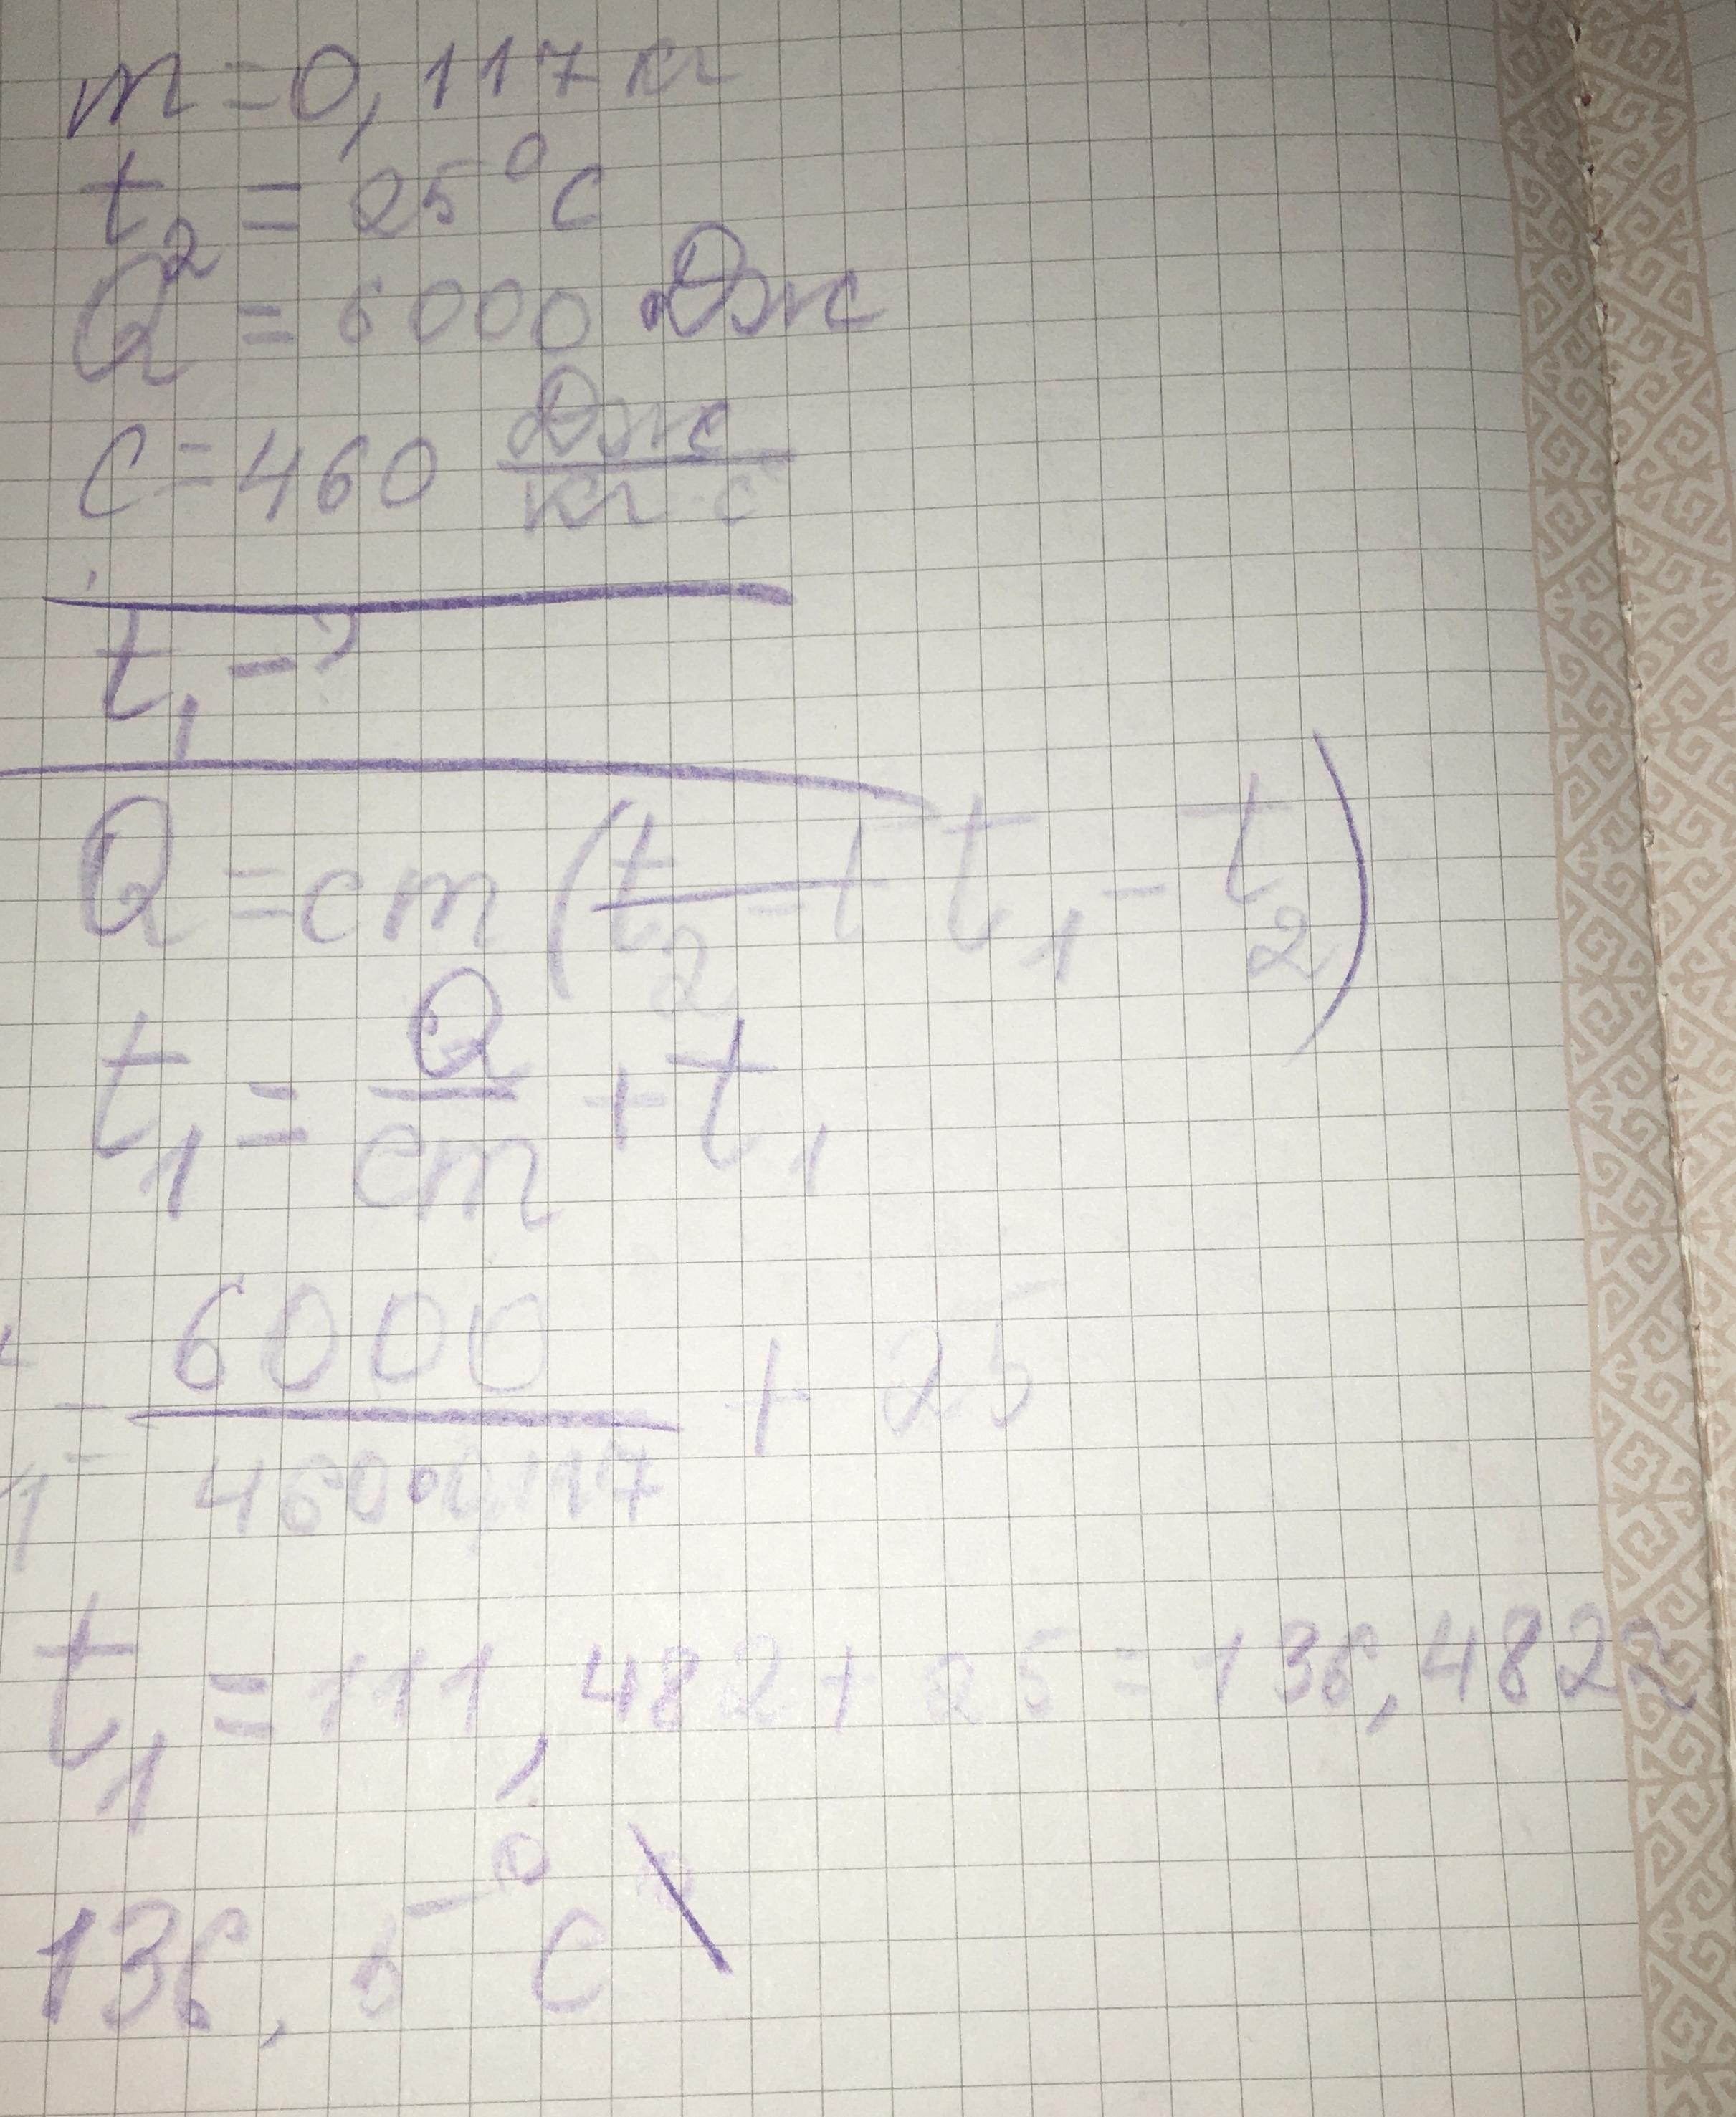 m = 0,117 кг
t₂ = 25°C
Q = 6000 Дж
c = 460 Дж/кг·c
t₁ - ?
Q = cm (t₂ - t t₁ - t₂)
t₁ = Q/cm + t₁
t₁ = 6000/460·0,117 + 25
t₁ = 111,482 + 25 = 136,482 ≈
136,5°C